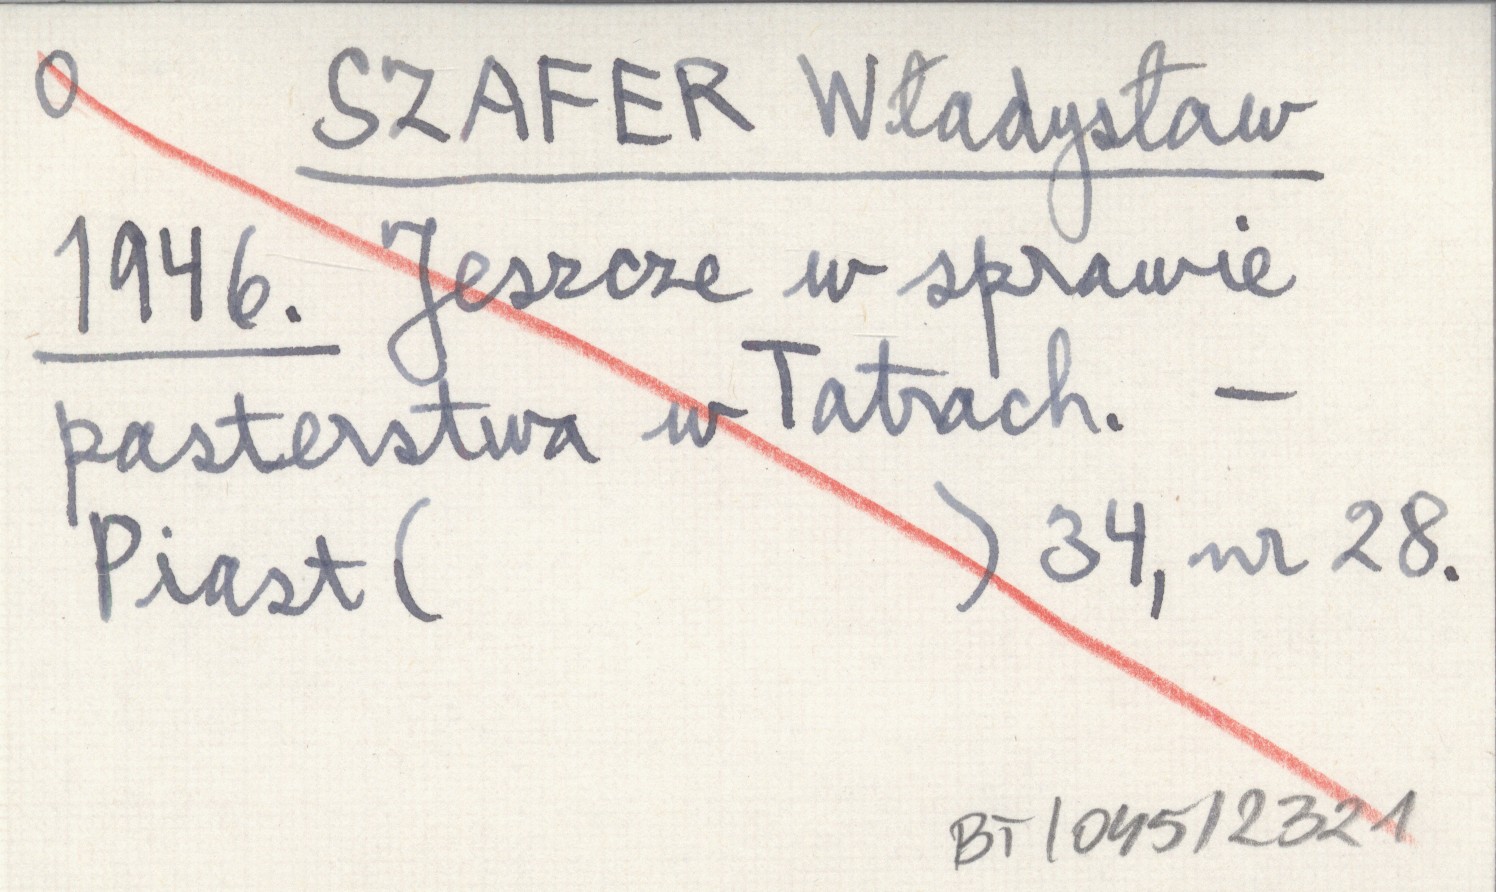 0 SZAFER Władysław
1946. Jeszcze w sprawie
pasterstwa w Tatrach. –
Piast ( ) 34, nr 28.
BT/045/2321